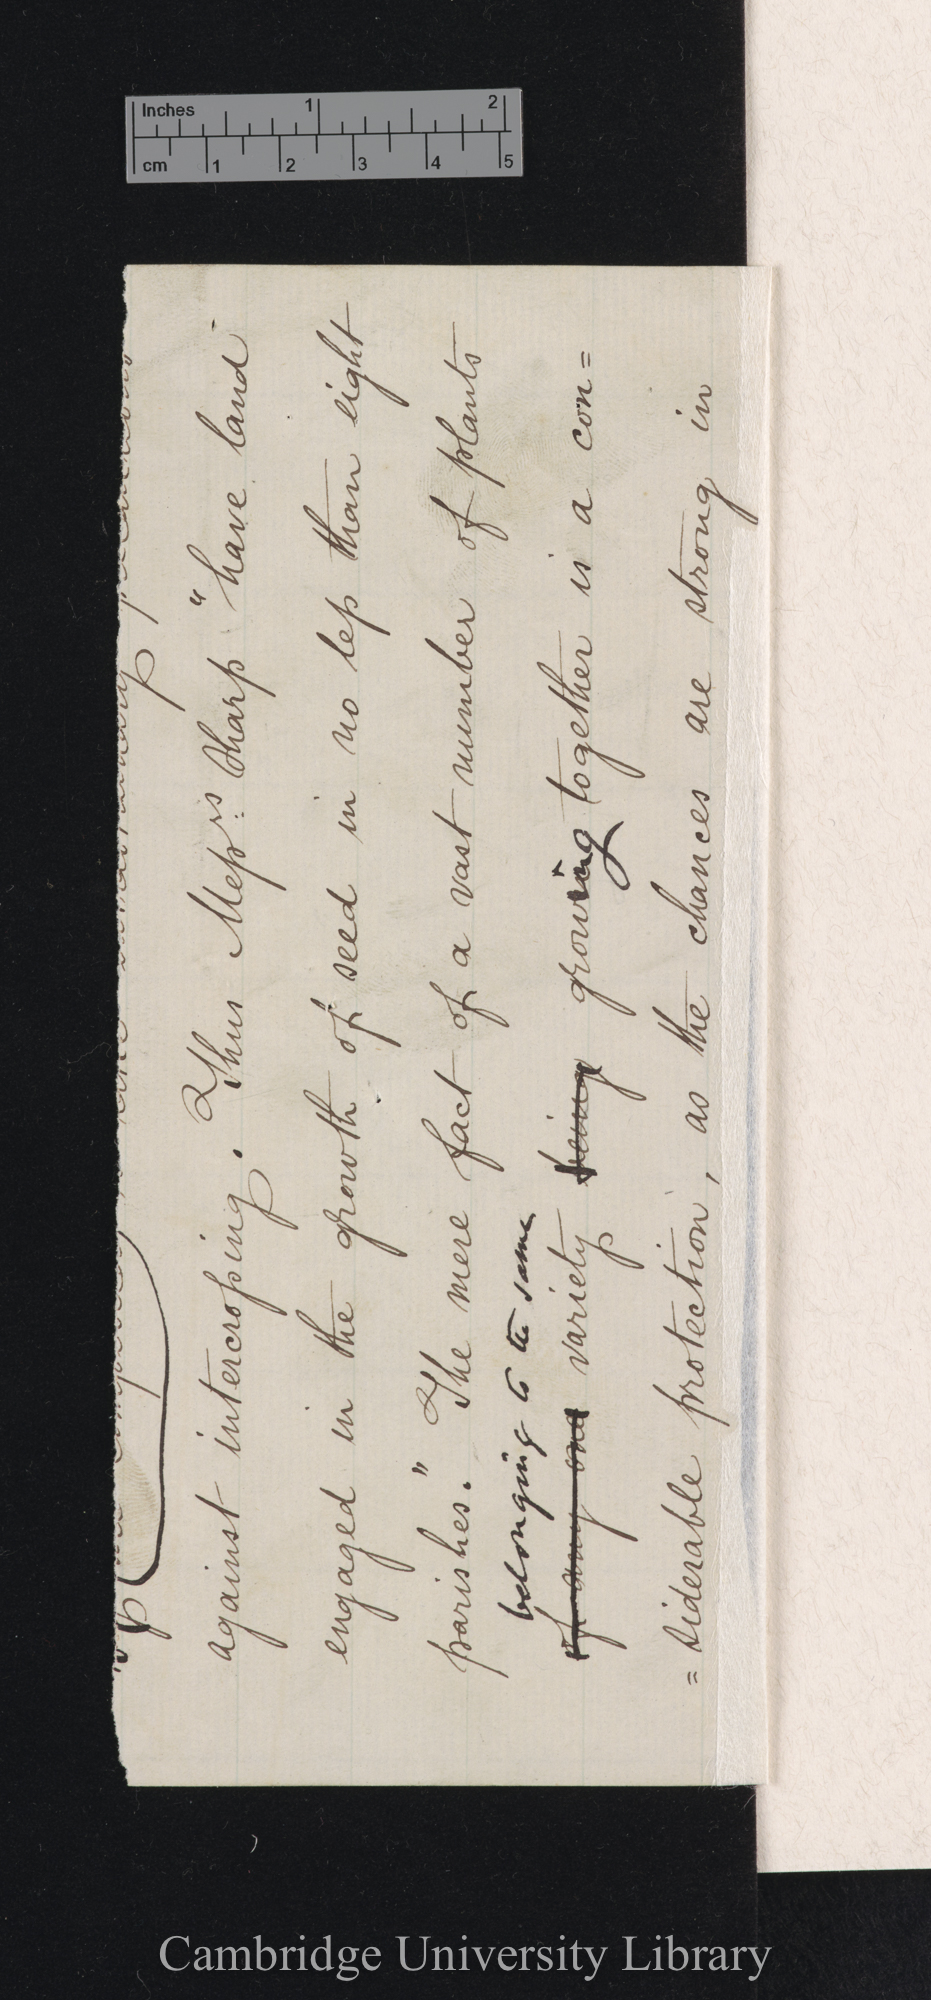 Inches 1 2
cm 1 2 3 4 5
against intercroping. Thus Messrs Sharp "have land
engaged in the growth of seed in no less than eight
parishes." The mere fact of a vast number of plants
belonging to the same
of any one variety being growing together is a con=
=siderable protection, as the chances are strong in
Cambridge University Library